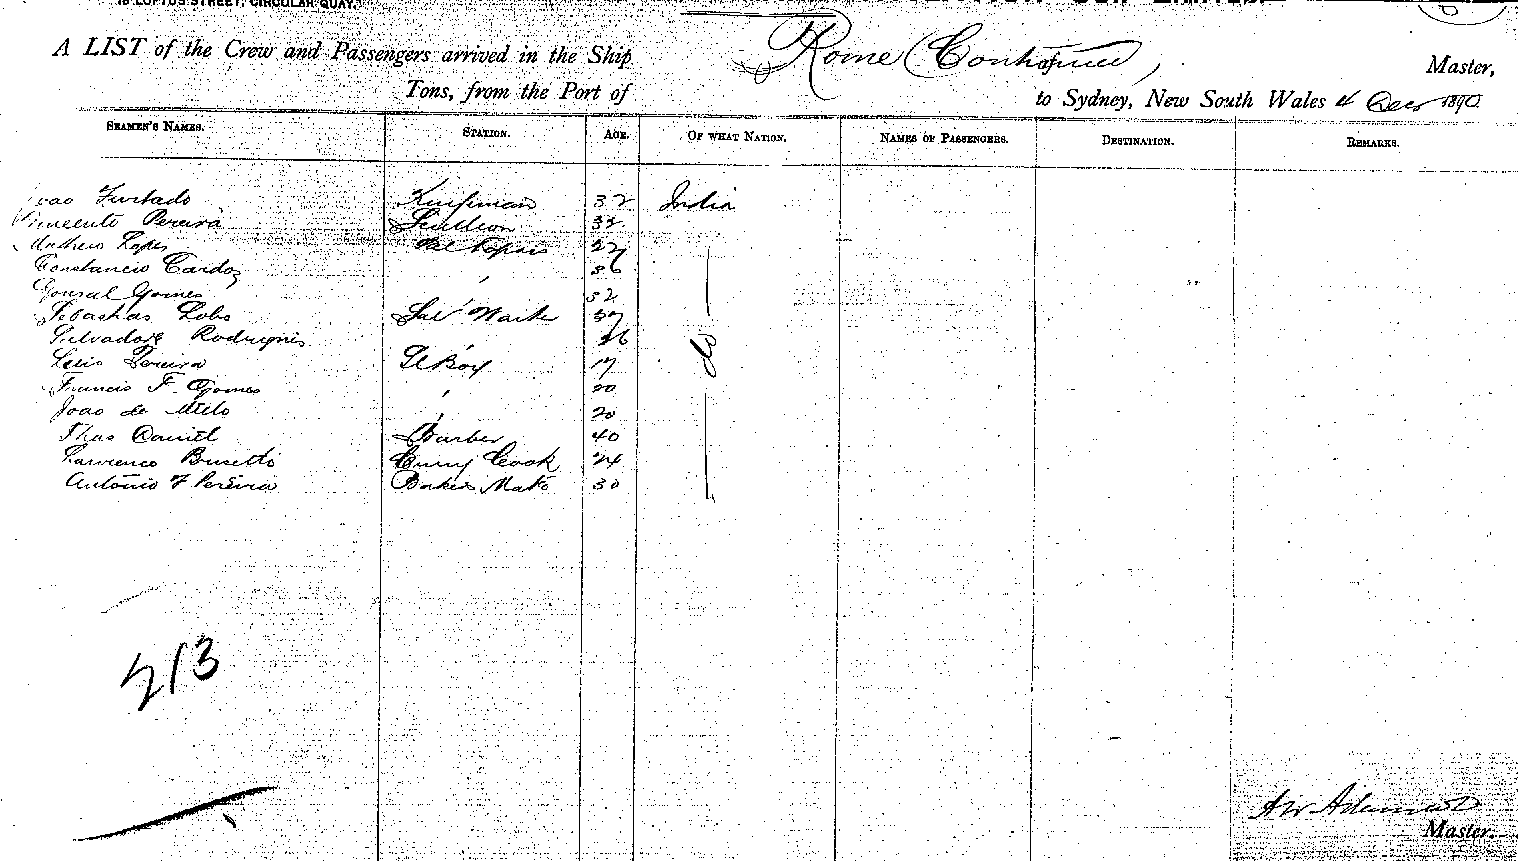 18 LOFTUS STREET, CIRCULAR QUAY.
A LIST of the Crew and Passengers arrived in the Ship Rome (Continued) Master,
Tons, from the Port of to Sydney, New South Wales 4 Decr 1890
SEAMEN'S NAMES. STATION. AGE. OF WHAT NATION. NAMES OF PASSENGERS. DESTINATION. REMARKS.
Joao Furtado 32 India
Pereira Scullion 32
Andrew Lopes 27
Constancio Cardoz ' 36
Gomes 32
Lobo 37
Salvadore Rodrigues ' 26
Luis Pereira 17 do
Francis F. Gomes ' 20
Joao de Mello ' 20
Thos Daniel Barber 40
Lawrence Busetto Curry Cook 24
Antonio F Pereira Bakers Mate 30
213
Master.